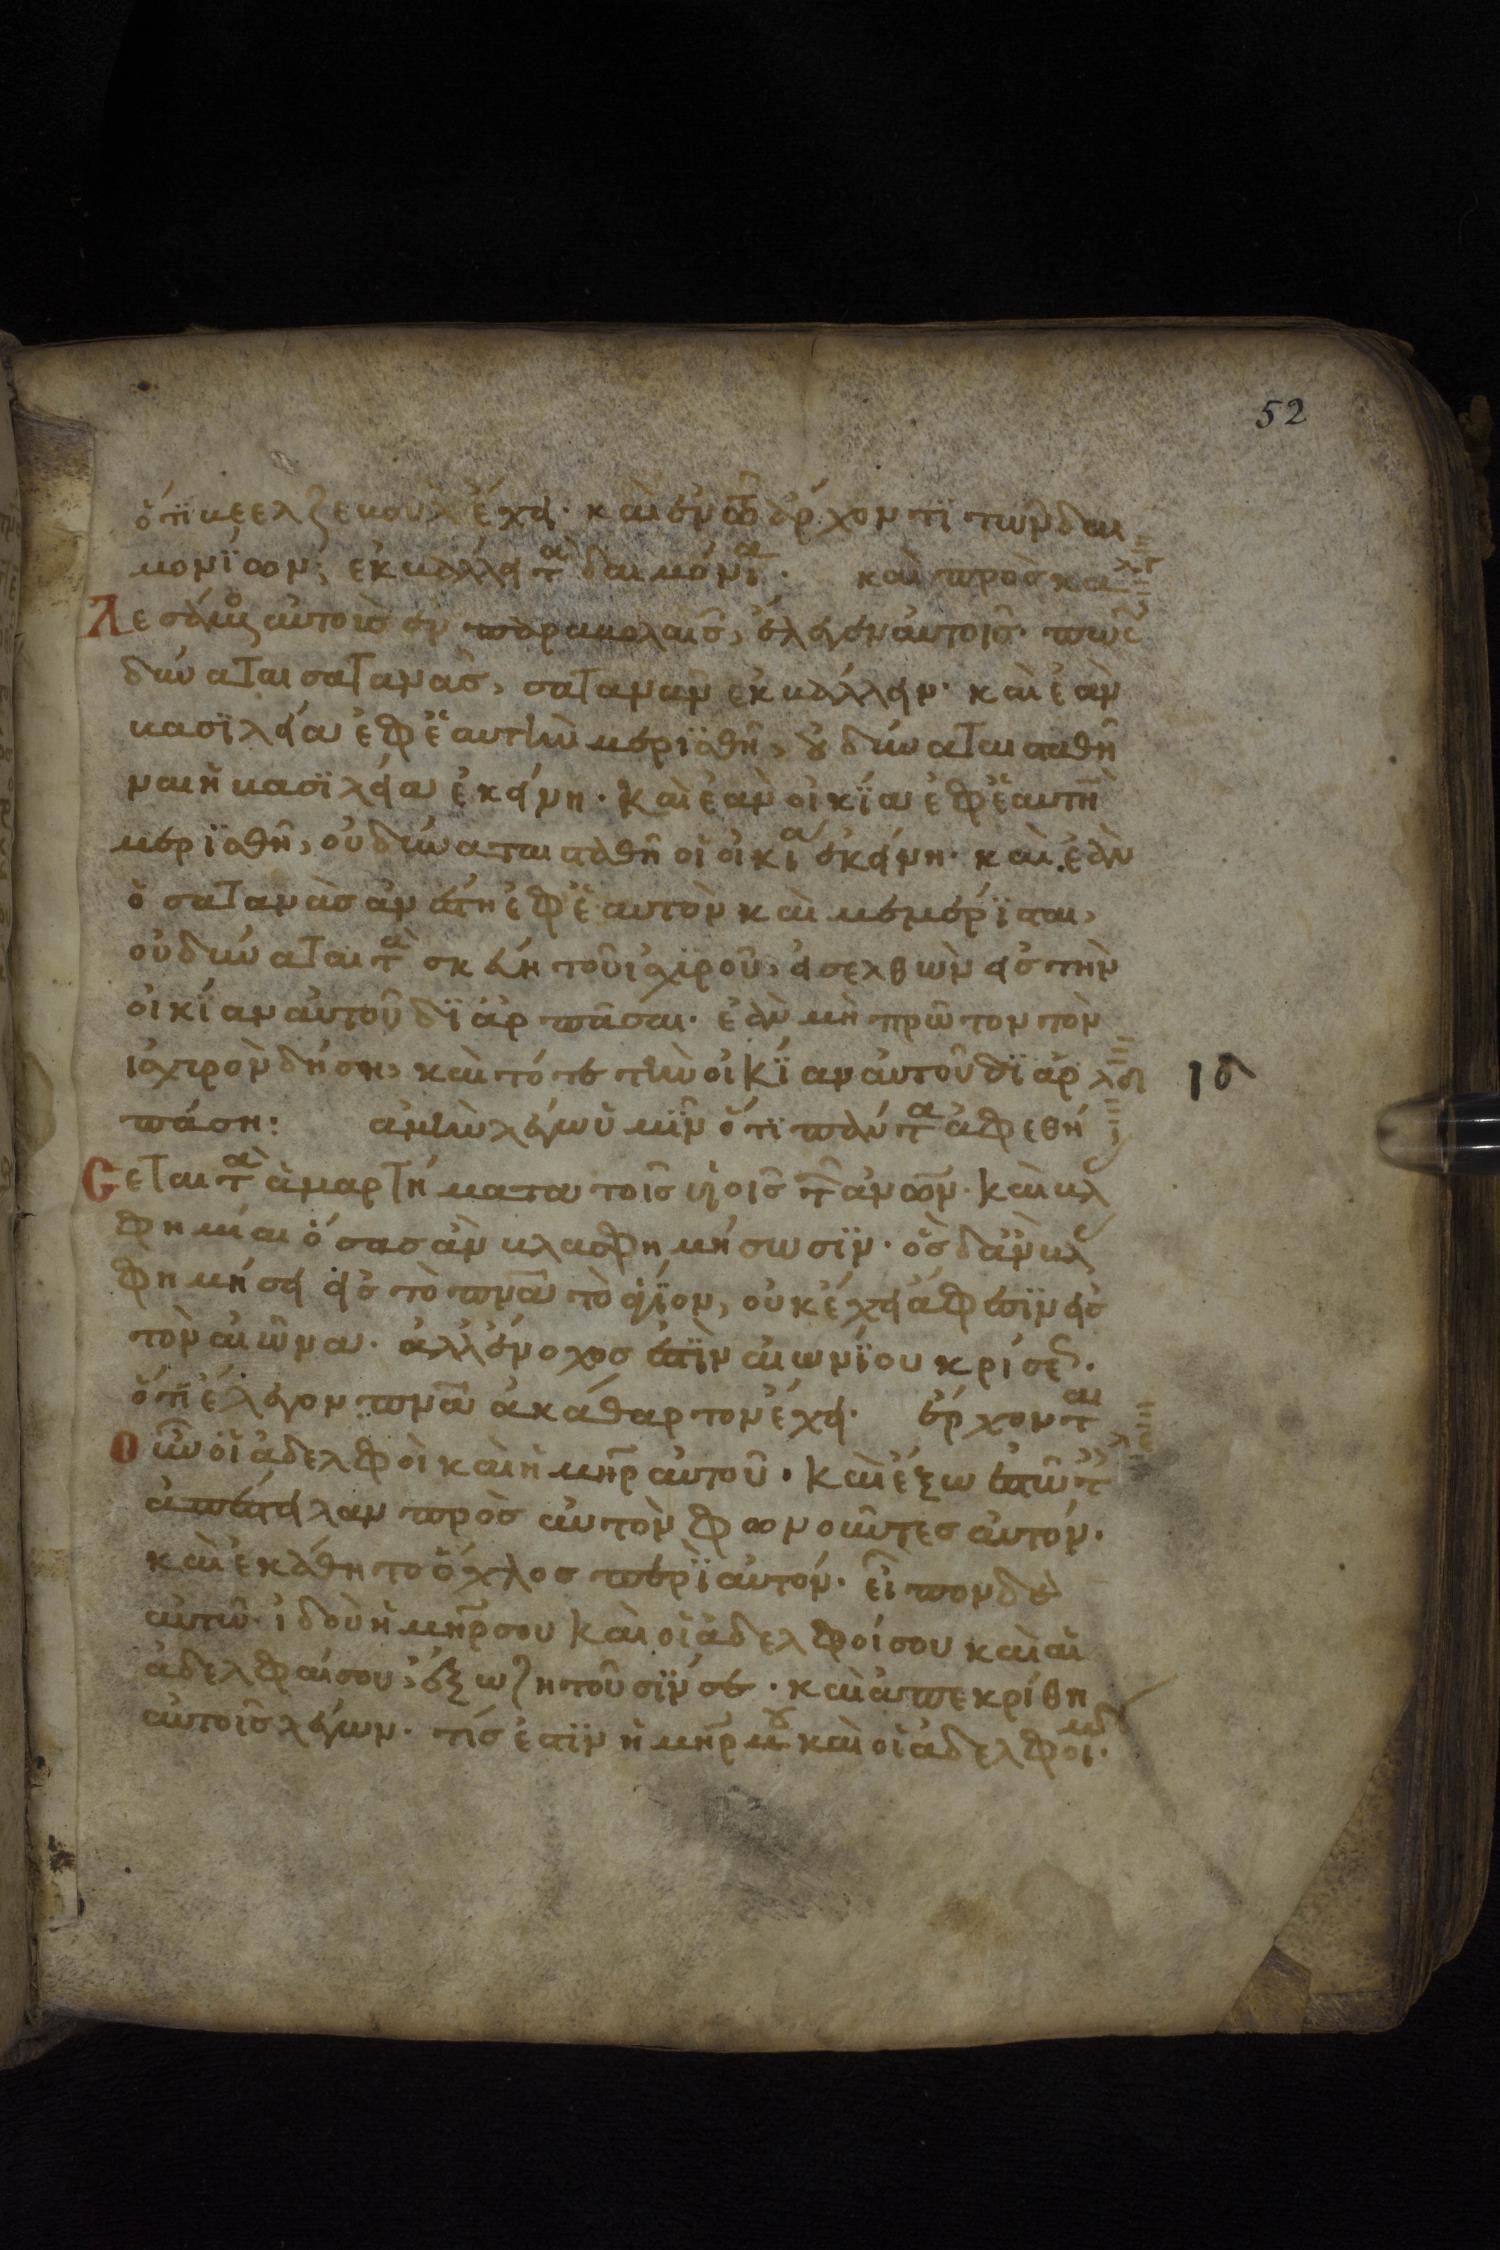 52
ὅτι βεελζεβοὺλ ἔχει· καὶ ἐν τῶ ἄρχοντι τῶν δαι
μονίων, ἐκβάλλει τὰ δαιμόνια· καὶ προσκα
λεσάμενος αὐτοὺς ἐν παραβολαῖς, ἔλεγεν αὐτοῖς· πῶς
δύναται σατανᾶς, σατανᾶν ἐκβάλλειν· καὶ ἐὰν
βασιλεία ἐφ ἑαυτὴν μερισθῆ, οὐ δύναται σταθῆ
ναι ἡ βασιλεία ἐκείνη· καὶ ἐὰν οἰκία ἐφ ἑαυτὴ
μερισθῆ, οὐ δύναται σταθῆ οἰ οἰκία ἐκείνη· καὶ ἐὰν
ὁ σατανᾶς ἀνέστη ἐφ ἑαυτὸν καὶ μεμέρισται,
οὐ δύναται τὰ σκεύη τοῦ ἰσχυροῦ, εἰσελθὼν εἰς τὴν
οἰκίαν αὐτοῦ διάρπᾶσαι· ἐὰν μὴ πρῶτον τὸν
ἰσχυρὸν δήση, καὶ τότε τὴν οἰκίαν αὐτοῦ διαρ λδ ιδ
πάση: ἀμὴν λέγω ὑμῖν ὅτι πάντα ἀφεθή
σεται τὰ ἁμαρτήματα τοῖς υἱοῖς τῶν ἀνων· καὶ βλ
φημίαι ὅσας ἂν βλασφημήσωσιν· ὃς δἂν βλ
φημήσει εἰς τὸ πνα τὸ ἅγιον, οὐκ ἔχει ἄφεσιν εἰς
τὸν αἰῶνα· ἀλλ ἔνοχος ἐστὶν αἰωνίου κρίσεως·
ὅτι ἔλεγον πνα ἀκάθαρτον ἔχει· ἔρχονται
οὖν οἱ ἀδελφοὶ καὶ ἡ μηρ αὐτοῦ· καὶ ἔξω ἑστῶτες
ἀπέστειλαν πρὸς αὐτὸν φωνοῦντες αὐτόν·
καὶ ἐκάθητο ὄχλος περὶ αὐτόν· εἶπον δὲ
αὐτῶ· ἰδοὺ ἡ μηρ σου καὶ οἱ ἀδελφοί σου καὶ αἱ
ἀδελφαί σου, ἔξω ζητοῦσίν σε· καὶ ἀπεκρίθη
αὐτοῖς λέγων· τίς ἐστὶν ἡ μηρ μου καὶ οἱ ἀδελφοί μου·